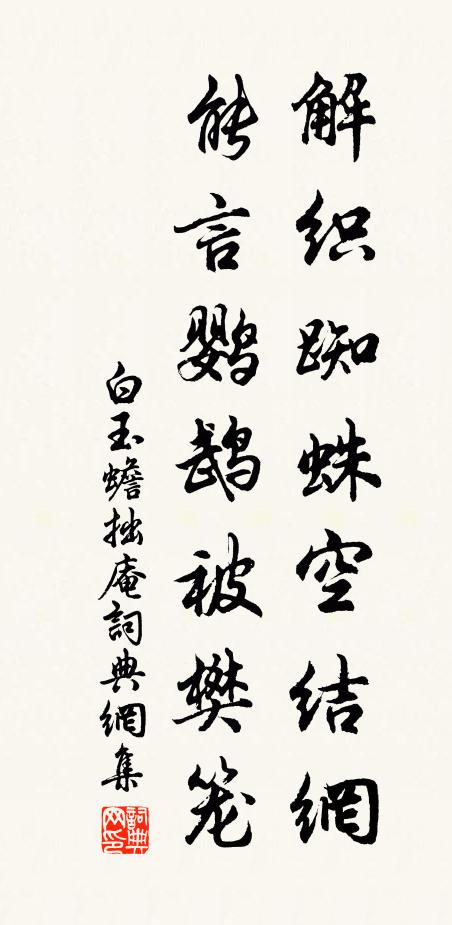 解织踟蛛空结網
能言鹦鹉被樊笼
白玉蟾拙庵詞典網集
詞典网印